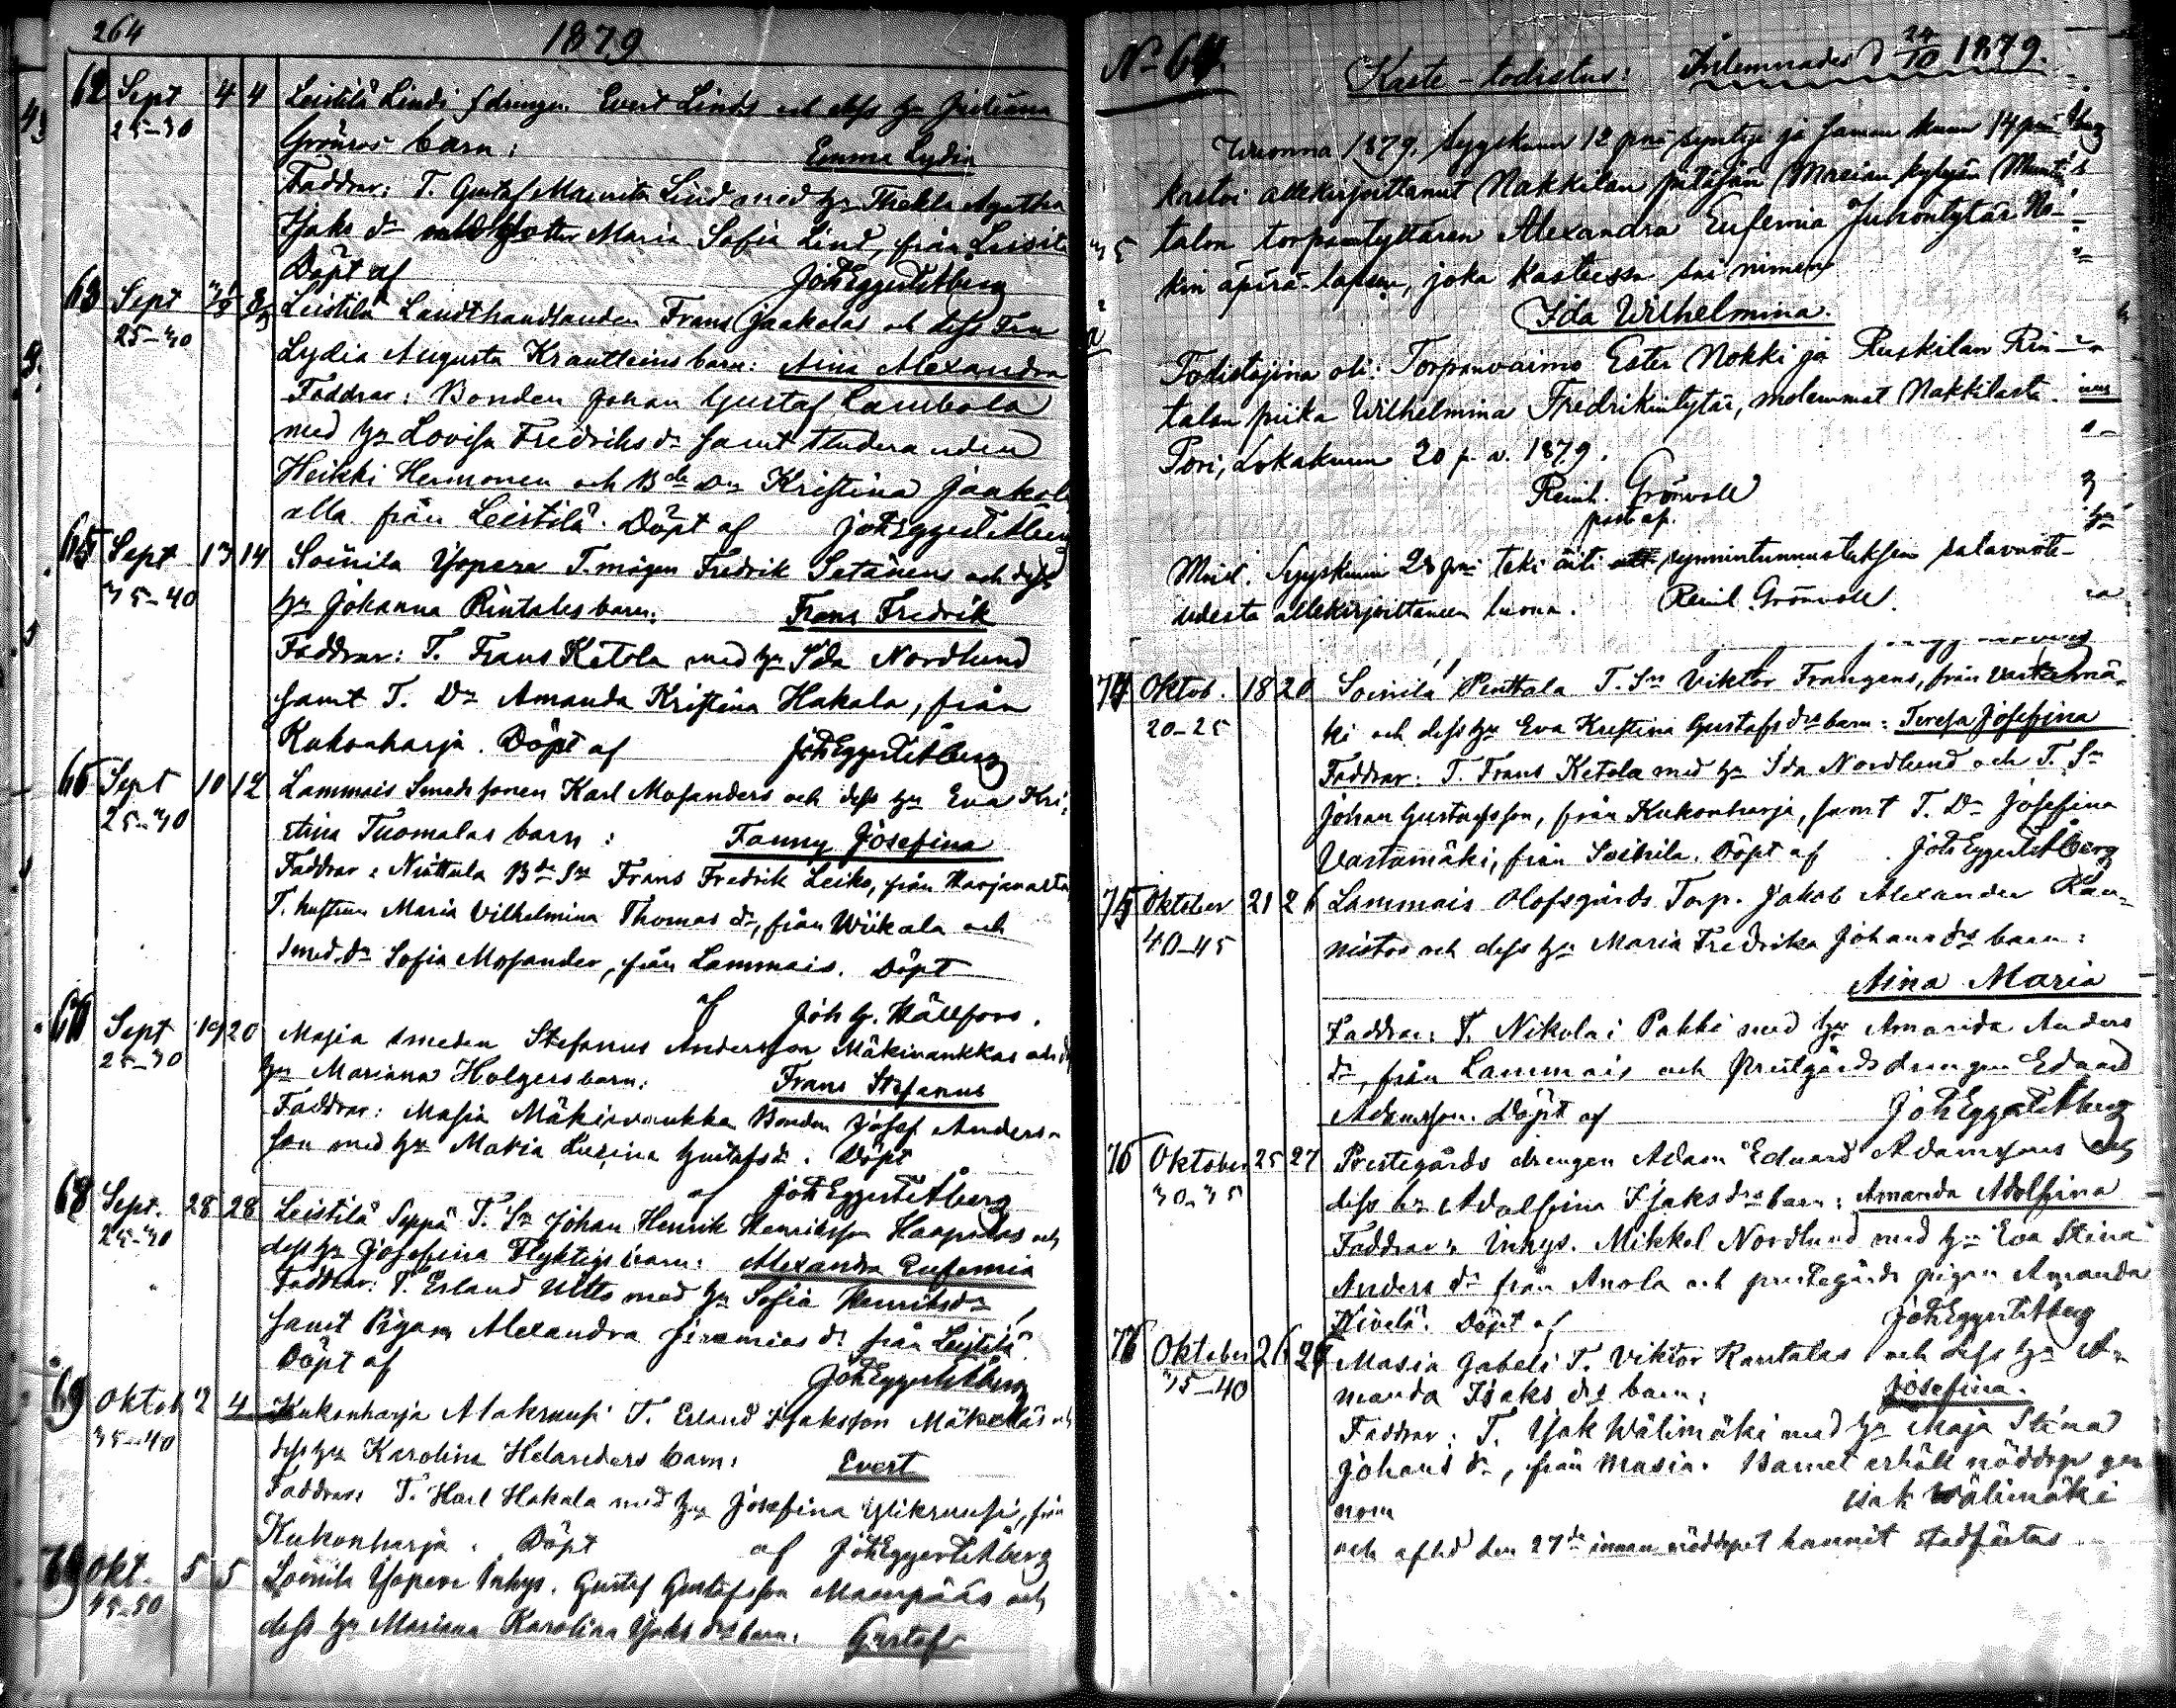 264
1879
62 Sept 4 4 Leistilä Lindi sdrengen Evert Linds och dess hu Juliana
25-30 Grönros barn: Emma Lydia
Faddrar: T. Gustaf Lind med hu Thekla Agatha
Isaks dr Maria Sofia Lind, från Leistilä
Döpt af Joh Eggert Åberg
63 Sept Leistilä Landthandlanden Frans Jaakolas och dess Fru
25-30 Lydia Augusta barn: Aina Alexandra
Faddrar: Bonden Johan Gustaf Lambola
med hu Lovisa Fredriks dr samt Studeranden
Heikki Hermonen och Bde Dr Kristina Jaakola
alla från Leistilä. Döpt af Joh Eggert Åberg
65 Sept 13 14 Soinila Yspere T. mågen Fredrik Setänens och dess
35-40 hu Johanna Rintalas barn: Frans Fredrik
Faddrar: T. Frans Ketola med hu Ida Nordlund
samt T. Dr Amanda Kristina Hakala, från
Kukonharja. Döpt af Joh Eggert Åberg
66 Sept 10 12 Lammais Smeds sonen Karl Mosanders och dess hu Eva Kri-
25-30 stina Tuomalas barn: Fanny Josefina
Faddrar: Niuttula Bde Sn Frans Fredrik Leiko, från
T. hustrun Maria Vilhelmina Thomas dr, från Wiikala och
smed. dr Sofia Mosander, från Lammais. Döpt
af Joh G. Hällfors.
Sept 19 20 Masia smeden Stefanus Andersson Mäkivankkas och
25-30 hu Mariana Holgers barn: Frans Stefanus
Faddrar: Masia Mäkivankka Bonden Josef Anders-
son med hu Maria Gustafs dr. Döpt
af Joh Eggert Åberg
68 Sept. 28 28 Leistilä Seppä T. Sn Johan Henrik Henriksson Haapalas och
25-30 dess hu Josefina Flyktigs barn: Alexandra Eufemia
Faddrar: T. Erland Utto med hu Sofia Henriksdr
samt Pigan Alexandra från Leistilä.
Döpt af Joh Eggert Åberg
69 Oktob 2 4 Kukonharja Alakruusi T. Erland Isaksson Mäkeläs och
35-40 dess hu Karolina Helanders barn: Evert
Faddrar: T. Karl Hakala med hu Josefina Ylikruusi, från
Kukonharja. Döpt af Joh Eggert Åberg
Okt. 5 5 Soinila Yspere Inhys. Gustaf Gustafsson och
45-50 dess hu Mariana Karolina Isaks drs barn: Gustaf
No 64. Kaste-todistus: Inlemnades d 24/10 1879.
Wuonna 1879. Syyskuun 12 pnä syntyi ja saman kuun 14 pnä
kastoi allekirjoittanut Nakkilan pitäjän Masian kylän
talon torpantyttären Alexandra Eufemia Juhontytär No-
kin äpärä-lapsen, joka kasteessa sai nimen
Ida Wilhelmina.
Todistajina oli: Torpanvaimo Ester Nokki ja Ruskilan Rin-
talan piika Wilhelmina Fredrikintytär, molemmat Nakkilasta.
Pori, Lokakuun 20 p. v. 1879.
Reinh. Grönvall
past. ap.
Muist. Syyskuun 28 pnä teki äiti synnintunnustuksen salavuote-
udesta allekirjoittaneen luona. Reinh. Grönvall.
74 Oktob. 18 20 Soinila Penttala T. Sn Viktor Franzens, från Vastamä-
20-25 ki och dess hu Eva Kristina Gustafs drs barn: Teresa Josefina
Faddrar: T. Frans Ketola med hu Ida Nordlund och T. Sn
Johan Gustafsson, från Kukonharja, samt T. Dr Josefina
Vastamäki, från Soinila. Döpt af Joh Eggert Åberg
75 Oktober 21 26 Lammais Olofsgårds Torp. Jakob Alexander Kan-
40-45 nistos och dess hu Maria Fredrika Johans drs barn:
Aina Maria
Faddrar: T. Nikolai Pakki med hu Amanda Anders
dr, från Lammais och Prestgårds drengen Eduard
Adamsson. Döpt af Joh Eggert Åberg
76 Oktober 25 27 Prestegårds drengen Adam Eduard Adamssons och
30-35 dess hu Adolfina Isaks drs barn: Amanda Adolfina
Faddrar: Inhys. Mikkel Nordlund med hu Eva Stina
Anders dr från Anola och prestegårds pigan Amanda
Kivelä. Döpt af Joh Eggert Åberg
Oktober 26 Masia Jabeli T. Viktor Rantalas och dess hu A-
35-40 manda Isaks drs barn: Josefina.
Faddrar: T. Isak Wälimäki med hu Maja Stina
Johans dr, från Masia. Barnet erhöll nöddop ge-
nom Isak Wälimäki
och afled den 27de innan nöddopet hunnit stadfästas.